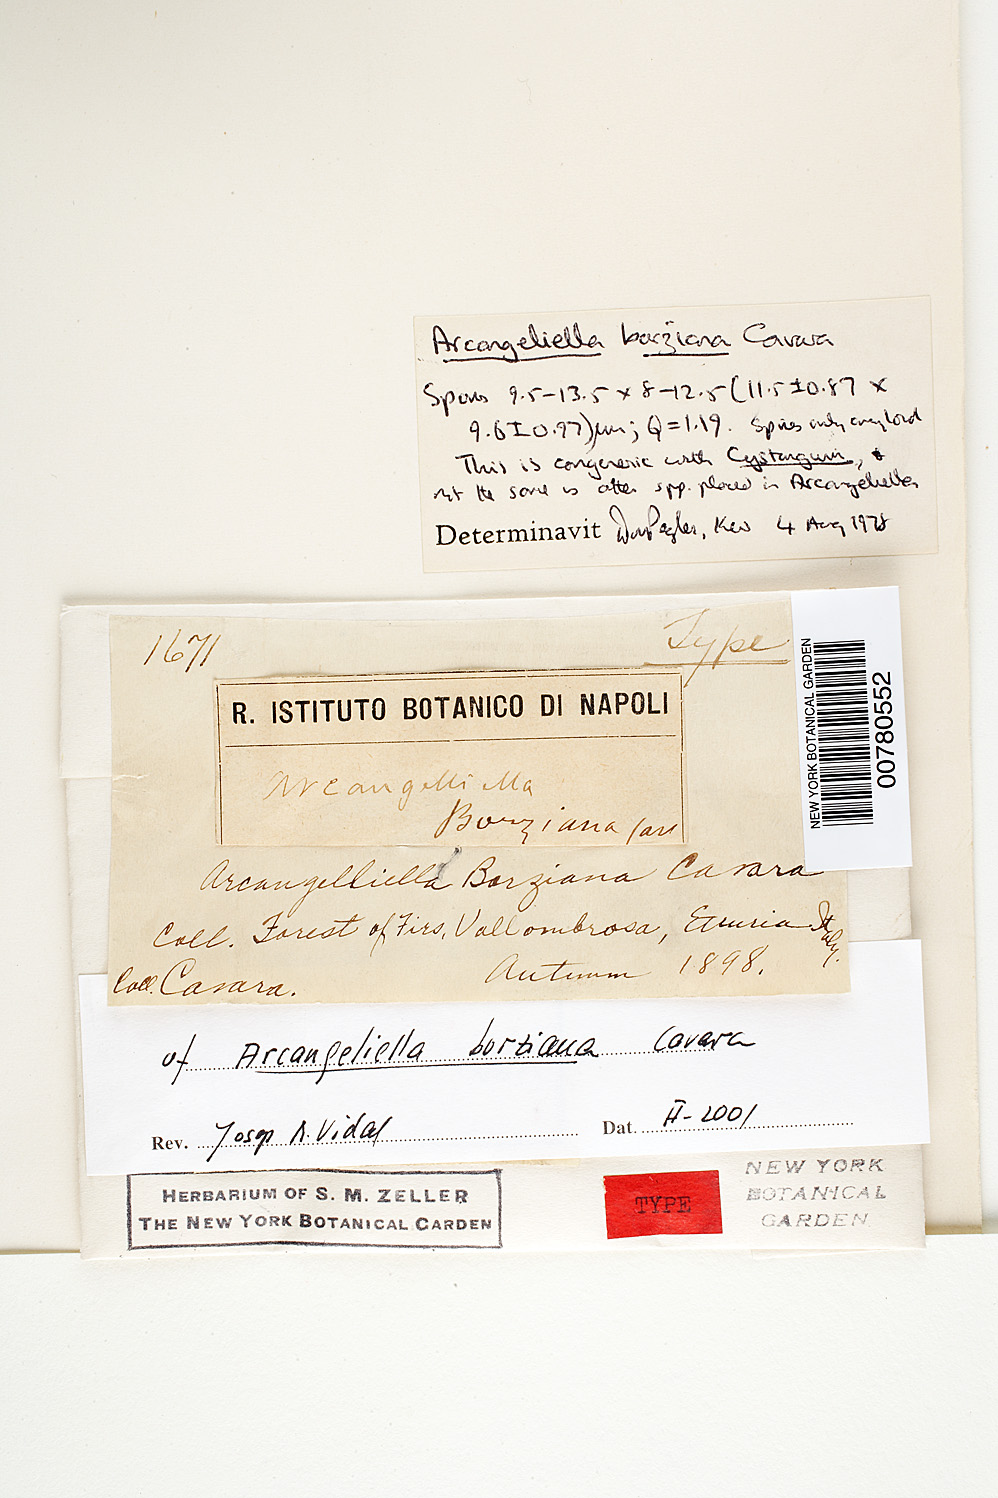 Arcangeliella borziana Cavara
Spores 9.5–13.5 × 8–12.5 (11.5±0.87 ×
9.6±0.97)μm; Q=1.19. Spores only amyloid
This is congeneric with Cystangium, &
not the same as other spp. placed in Arcangeliella
Determinavit Pegler, Kew 4 Aug 1978
1671 Type
R. ISTITUTO BOTANICO DI NAPOLI
Arcangelliella
Borziana Cav
NEW YORK BOTANICAL GARDEN
00780552
Arcangelliella Borziana Cavara
Coll. Forest of Firs, Vallombrosa, Etruria Italy.
Coll. Cavara. Autumn 1898.
of Arcangeliella borziana Cavara
Rev. Josep M. Vidal Dat. II-2001
HERBARIUM OF S. M. ZELLER
THE NEW YORK BOTANICAL GARDEN
TYPE
NEW YORK
BOTANICAL
GARDEN